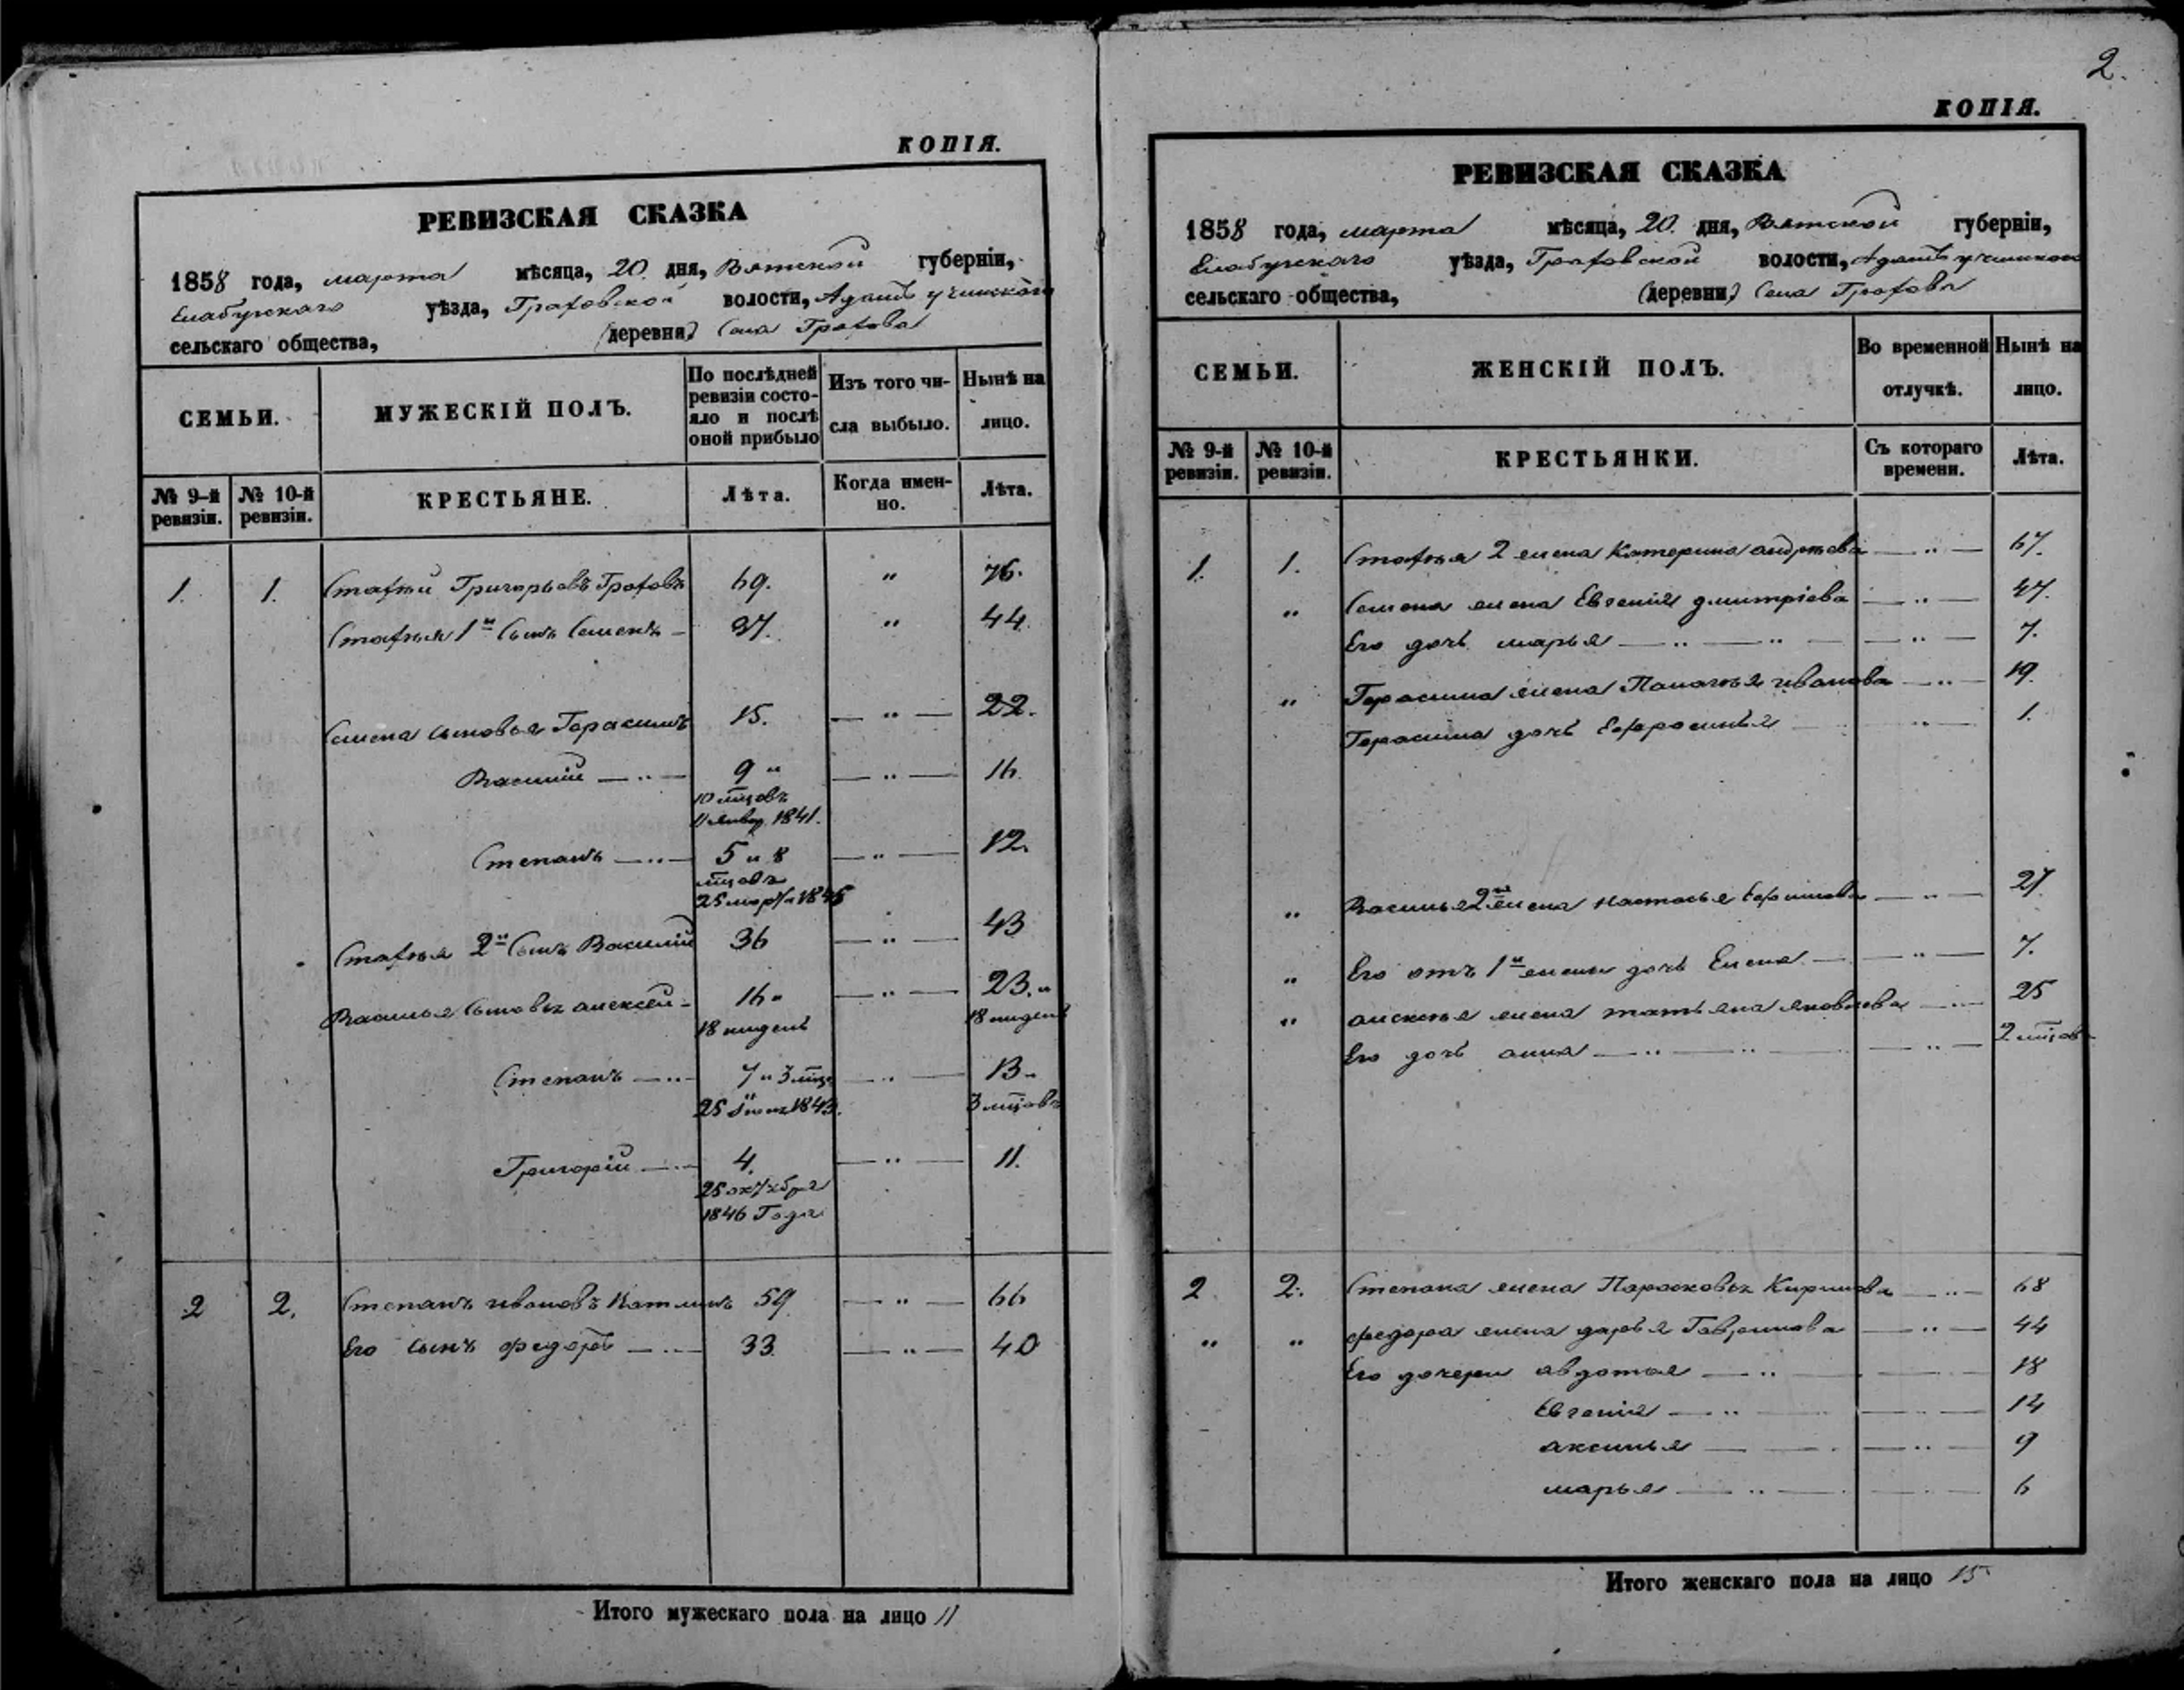 КОПІЯ.
РЕВИЗСКАЯ СКАЗКА
1858 года, марта мѣсяца, 20. дня, Вятской губерніи,
Елабужскаго уѣзда, Граховской волости,
сельскаго общества, (деревни) Села Грахова
СЕМЬИ.
МУЖЕСКІЙ ПОЛЪ.
По послѣдней ревизіи состояло и послѣ оной прибыло
Изъ того числа выбыло.
Нынѣ на лицо.
№ 9-й ревизіи.
№ 10-й ревизіи.
КРЕСТЬЯНЕ.
Лѣта.
Когда именно.
Лѣта.
1. 1. Григорьевъ Граховъ 69. " 76.
1й Сынъ Семенъ 37. " 44.
Семена сыновья Герасимъ 15. — " — 22.
Василій — " — 9 " — " — 16.
10 мцовъ
11 Январ. 1841.
Степанъ — " — 5 и 8 — " — 12.
мцовъ
25 марта 1845
2й Сынъ Василій 36 — " — 43
Василья Сыновья алексей 16 " — " — 23. "
18 нидель 18 нидель
Степанъ — " — 7 и 3 мца — " — 13 "
25 1843. 3 мцовъ
Григорій — " — 4. — " — 11.
25 октября
1846 Года
2 2. Степанъ ивановъ 59 — " — 66
Его сынъ федоръ — " — 33. — " — 40
Итого мужескаго пола на лицо 11
2.
КОПІЯ.
РЕВИЗСКАЯ СКАЗКА
1858 года, марта мѣсяца, 20. дня, Вятской губерніи,
Елабужскаго уѣзда, Граховской волости,
сельскаго общества, (деревни) Села Грахова
СЕМЬИ.
ЖЕНСКІЙ ПОЛЪ.
Во временной отлучкѣ.
Нынѣ на лицо.
№ 9-й ревизіи.
№ 10-й ревизіи.
КРЕСТЬЯНКИ.
Съ котораго времени.
Лѣта.
1. 1. 2 жена Катерина андреева — " — 67.
" Семена жена Евгенія дмитріева — " — 47.
Его дочь марья — " — " — " — 7.
" Герасима жена иванова — " — 19.
Герасима дочь Ефросинья " — 1.
" Василья 2я жена настасья — " — 27.
" Его отъ 1й жены дочь Елена — " — 7.
" алексея жена татьяна яковлева — " — 25
Его дочь анна — " — " — " — 2 мцовъ
2 2. Степана жена Парасковья Кирилова — " — 68
" " федора жена дарья Гаврилова — " — 44
Его дочери авдотья — " — 18
Евгенія — " — " — 14
аксинья — " — 9
марья — " — 6
Итого женскаго пола на лицо 15